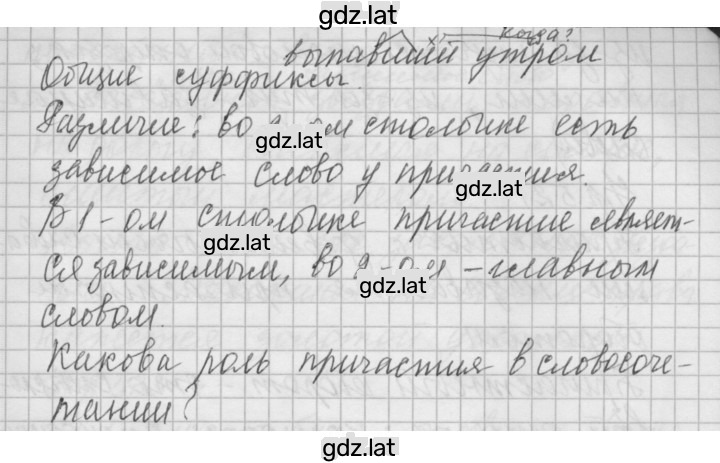 gdz.lat
когда?
выпавший утром
Общие суффиксы.
Различие: во столбике есть
gdz.lat
зависимое слово у причастия.
gdz.lat
В 1-ом столбике причастие являет-
gdz.lat
ся зависимым, во 2-ом - главным
gdz.lat
словом.
Какова роль причастия в словосоче-
тании?
gdz.lat